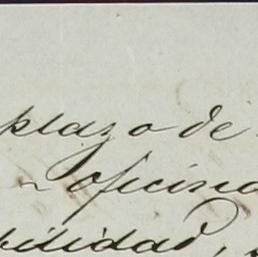 plazo de
oficina
bilidad,